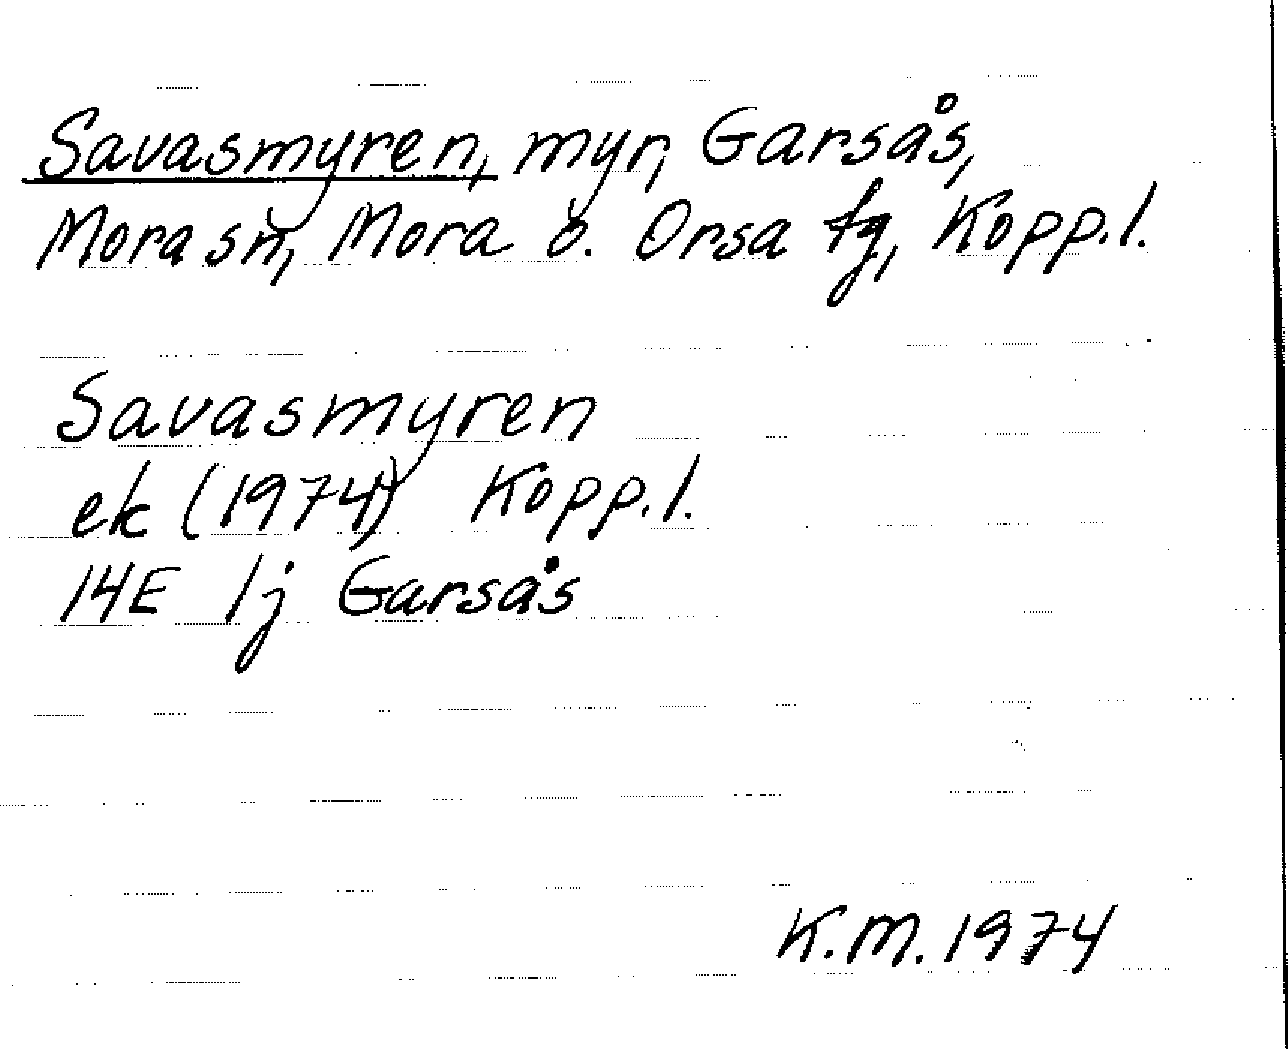 Savasmyren, myr, Garsås,
Mora sn, Mora o. Orsa tg, Kopp.l.
Savasmyren
ek (1974) Kopp.l.
14E 1j Garsås
K.M. 1974